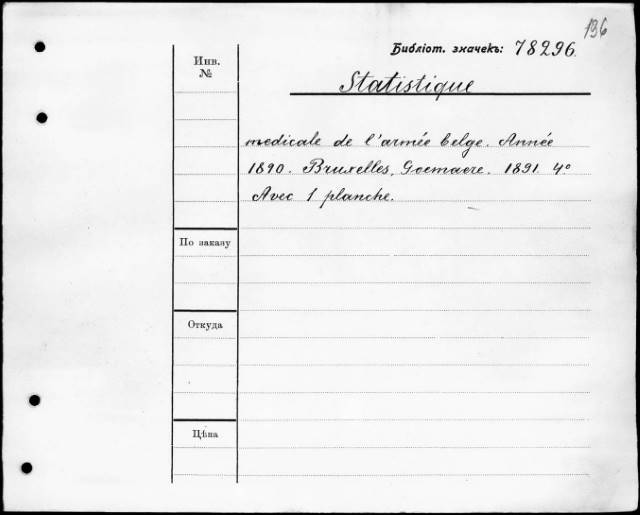 136
Библіот. значекъ: 78296.
Инв.
№
Statistique
medicale de l'armée belge. Année
1890. Bruxelles, Goemaere. 1891. 4º
Avec 1 planche.
По заказу
Откуда
Цѣна